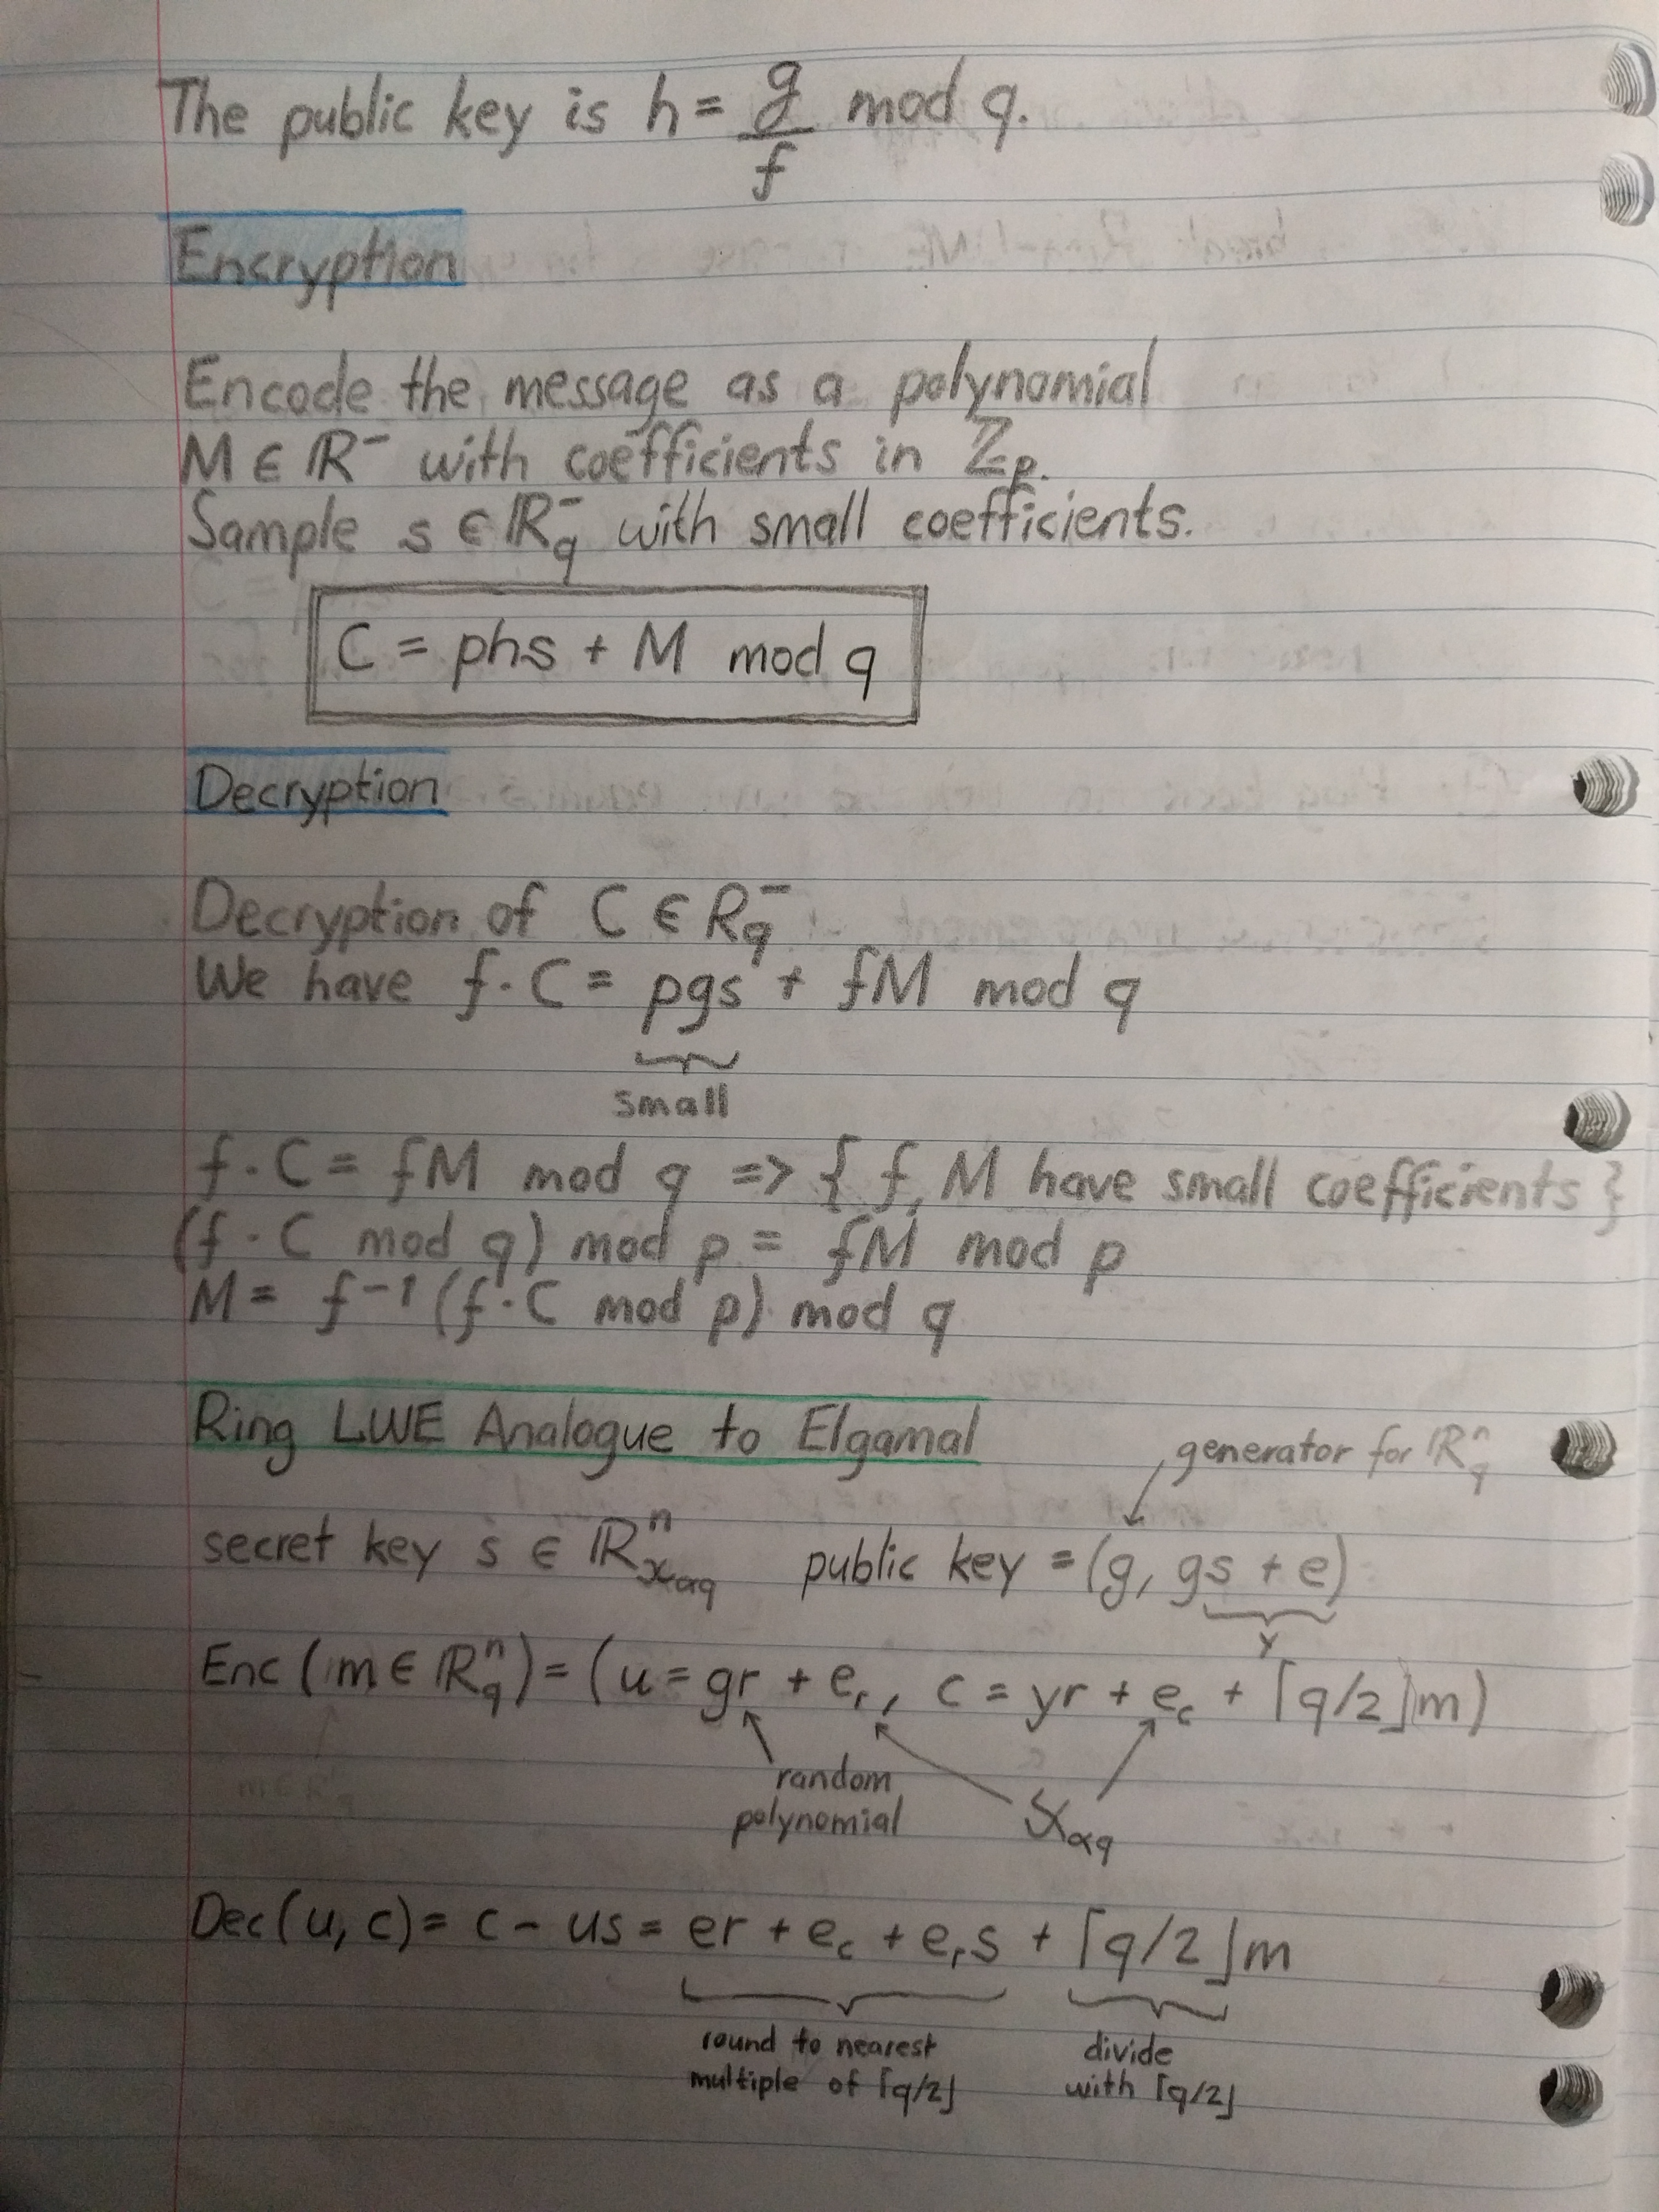 The public key is h = g/f mod q.
Encryption
Encode the message as a polynomial
M ∈ ℝ⁻ with coefficients in ℤₚ.
Sample s ∈ ℝ_q⁻ with small coefficients.
C = phs + M mod q
Decryption
Decryption of C ∈ R_q⁻
We have f · C = pgs + fM mod q
small
f · C = fM mod q => { f, M have small coefficients }
(f · C mod q) mod p = fM mod p
M = f⁻¹ (f · C mod p) mod q
Ring LWE Analogue to Elgamal
generator for ℝ_q^n
secret key s ∈ ℝ_{χ_αq}^n public key = (g, gs + e)
y
Enc (m ∈ ℝ_q^n) = (u = gr + e_r, c = yr + e_c + ⌈q/2⌋m)
random
polynomial
χ_αq
Dec(u, c) = c - us = er + e_c + e_r s + ⌈q/2⌋m
round to nearest
multiple of ⌈q/2⌋
divide
with ⌈q/2⌋